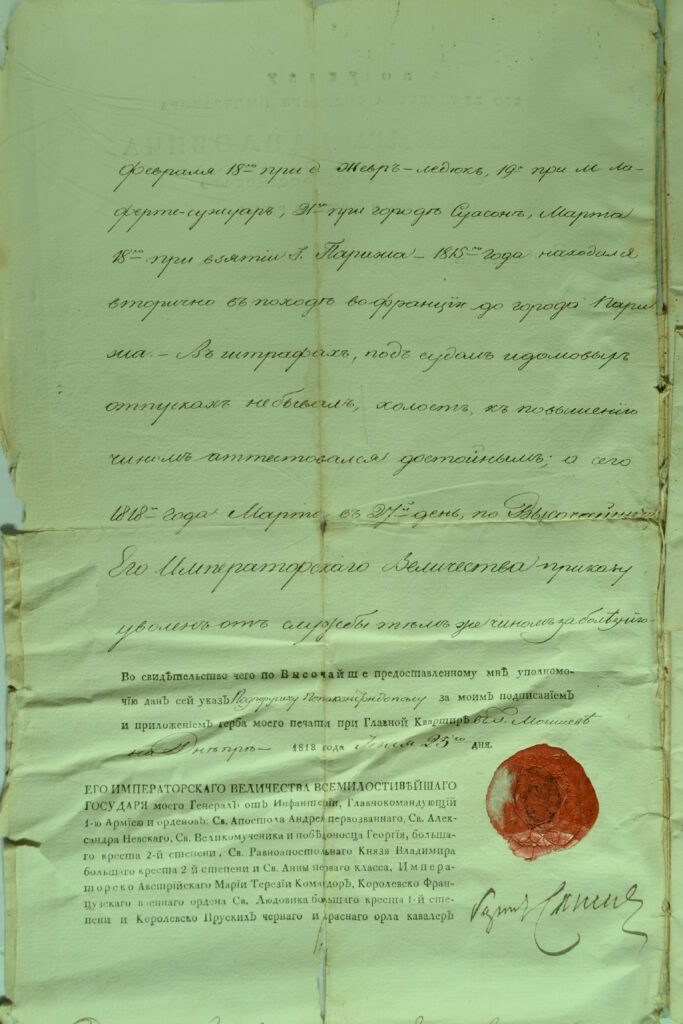 Февраля 18го при д Жевръ-ледюкъ, 19го при м Ла-
ферте-сужуаръ, 21го при городѣ Суасонъ, Марта
18го при взятіи Г. Парижа — 1815го года находился
вторично въ походѣ во франціи до города Пари
жа. — Въ штрафахъ, подъ судомъ и домовыхъ
отпускахъ не бывалъ, холостъ, къ повышенію
чиномъ аттестовался достойнымъ; а сего
1818го года Марта въ 27й день, по Высочайшему
Его Императорскаго Величества приказу
уволенъ отъ службы тѣмъ же чиномъ за болѣзнію
Во свидѣтельство чего по Высочайше предоставленному мнѣ уполномо-
чію данъ сей указъ за моимъ подписаніемъ
и приложеніемъ герба моего печати при Главной Квартирѣ въ Г. Могилевѣ
на Днѣпрѣ — 1818 года 25го дня.
ЕГО ИМПЕРАТОРСКАГО ВЕЛИЧЕСТВА ВСЕМИЛОСТИВѢЙШАГО
ГОСУДАРЯ моего Генералъ отъ Инфантеріи, Главнокомандующій
1-ю Арміею и орденовъ: Св. Апостола Андрея первозваннаго, Св. Алек-
сандра Невскаго, Св. Великомученика и побѣдоносца Георгія, больша-
го креста 2-й степени, Св. Равноапостольнаго Князя Владимира
большаго креста 2 й степени и Св. Анны перваго класса, Импера-
торско Австрійскаго Маріи Терезіи Командоръ, Королевско Фран-
цузскаго военнаго ордена Св. Людовика большаго креста 1-й сте-
пени и Королевско Прускихъ чернаго и краснаго орла кавалеръ